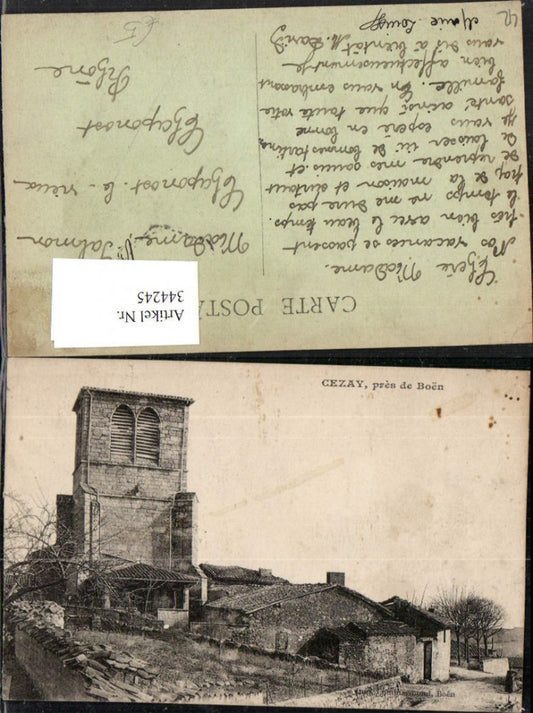 CARTE POSTA
Artikel Nr.
344245
Chère Madame.
Nos vacances se passent
très bien avec le beau temps.
le temps ne me dure pas
trop de la maison et surtout
de reprendre mes soucis et
de laisser ici de bonnes tartines,
Je vous espère en bonne
santé ainsi que toute votre
famille. En vous embrassant
bien affectueusement je
vous dit à bientôt
Marie Louise
Madame Salmon
Chaponost. le. vieux
Chaponost
Rhône
CEZAY, près de Boën
Boën